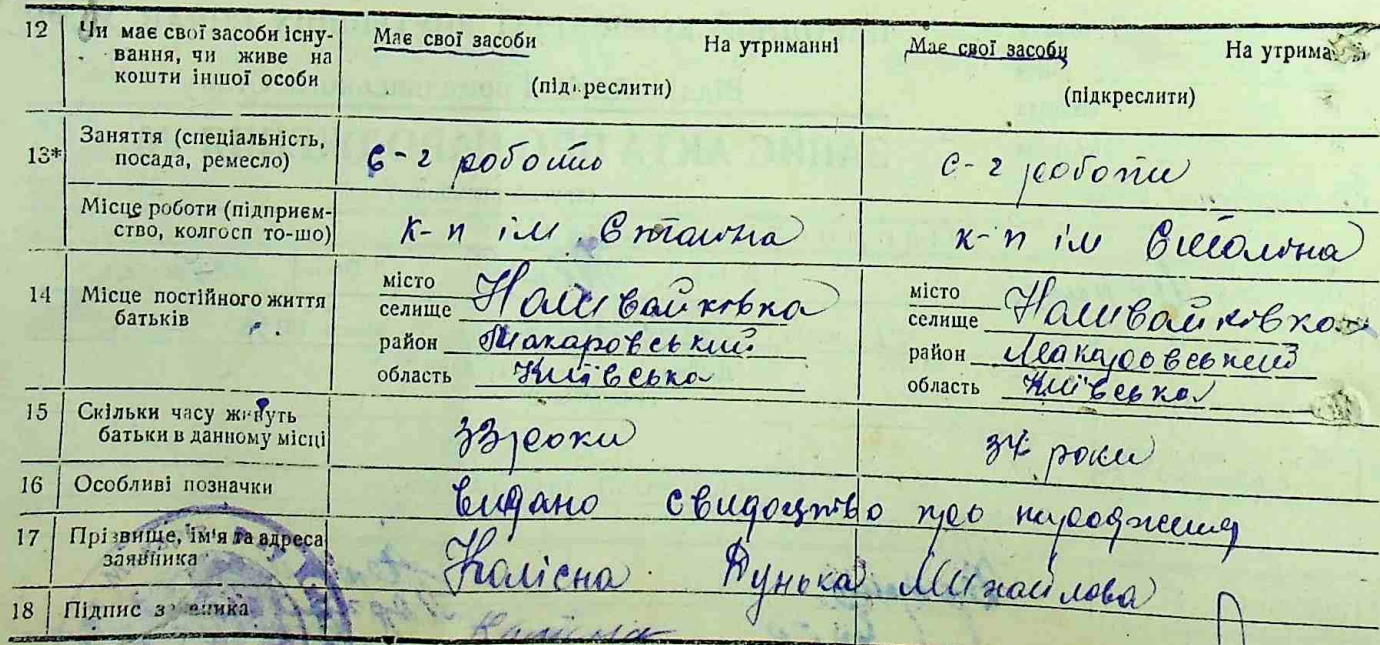 12 Чи має свої засоби існу- Має свої засоби На утриманні Має свої засоби На утрима
вання, чи живе на
кошти іншої особи (підкреслити) (підкреслити)
13* Заняття (спеціальність,
посада, ремесло) с-г роботи с-г роботи
Місце роботи (підприєм-
ство, колгосп то-що) к-п ім Сталіна к-п ім Сталіна
14 Місце постійного життя
батьків
місто
селище Наливайківка
район Макаровський
область Київська
місто
селище Наливайківка
район Макаровський
область Київська
15 Скільки часу живуть
батьки в данному місці 33 роки 34 роки
16 Особливі позначки видано свидоцтво про народження
17 Прізвище, ім'я та адреса
заявника Колісна Дунька Михайлова
18 Підпис заявника